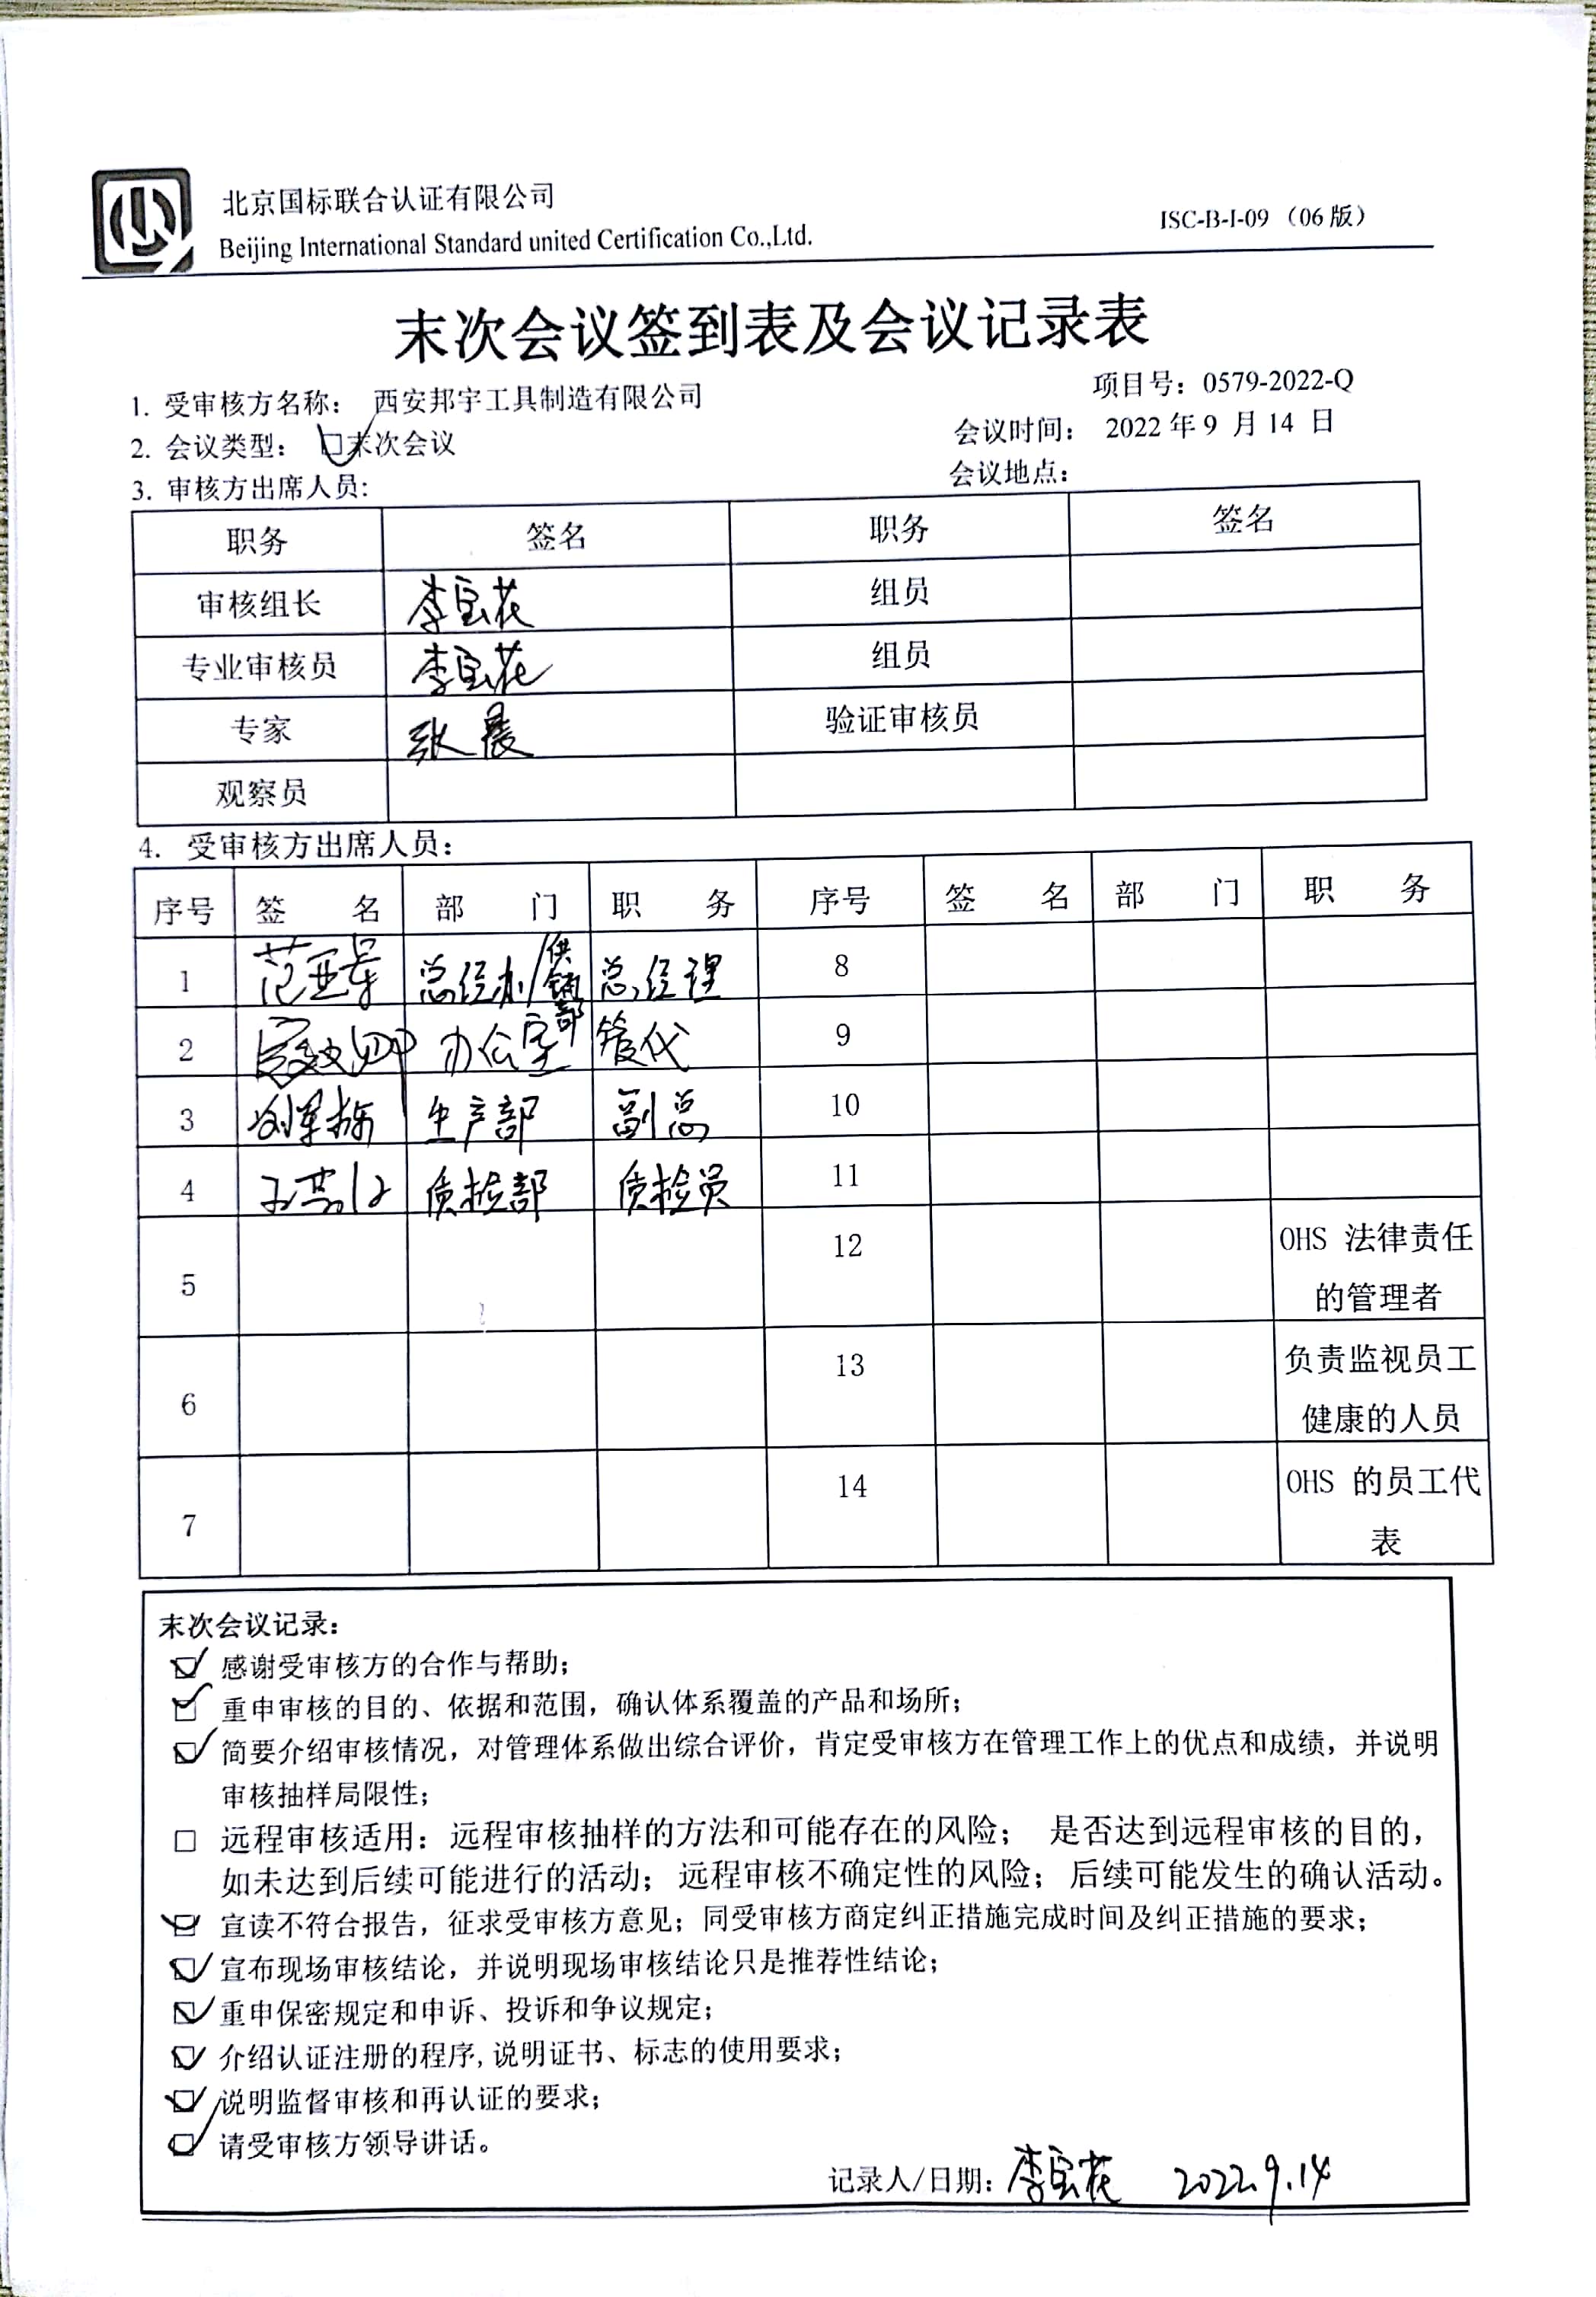 北京国标联合认证有限公司
Beijing International Standard united Certification Co.,Ltd.
ISC-B-I-09 （06版）
末次会议签到表及会议记录表
项目号：0579-2022-Q
1. 受审核方名称： 西安邦宇工具制造有限公司
2. 会议类型： ☑末次会议
会议时间： 2022年9 月14 日
3. 审核方出席人员:
会议地点：
职务 签名 职务 签名
审核组长 李宝花 组员
专业审核员 李宝花 组员
专家 张晨 验证审核员
观察员
4. 受审核方出席人员：
序号 签 名 部 门 职 务 序号 签 名 部 门 职 务
1 总经办/供销部 总经理 8
2 办公室 管代 9
3 刘军栋 生产部 副总 10
4 质检部 质检员 11
5 12 OHS 法律责任
的管理者
6 13 负责监视员工
健康的人员
7 14 OHS 的员工代
表
末次会议记录：
☑ 感谢受审核方的合作与帮助；
☑ 重申审核的目的、依据和范围，确认体系覆盖的产品和场所；
☑ 简要介绍审核情况，对管理体系做出综合评价，肯定受审核方在管理工作上的优点和成绩，并说明
审核抽样局限性；
□ 远程审核适用：远程审核抽样的方法和可能存在的风险； 是否达到远程审核的目的，
如未达到后续可能进行的活动；远程审核不确定性的风险；后续可能发生的确认活动。
☑ 宣读不符合报告，征求受审核方意见；同受审核方商定纠正措施完成时间及纠正措施的要求；
☑ 宣布现场审核结论，并说明现场审核结论只是推荐性结论；
☑ 重申保密规定和申诉、投诉和争议规定；
☑ 介绍认证注册的程序,说明证书、标志的使用要求；
☑ 说明监督审核和再认证的要求；
☑ 请受审核方领导讲话。
记录人/日期：李宝花 2022.9.14